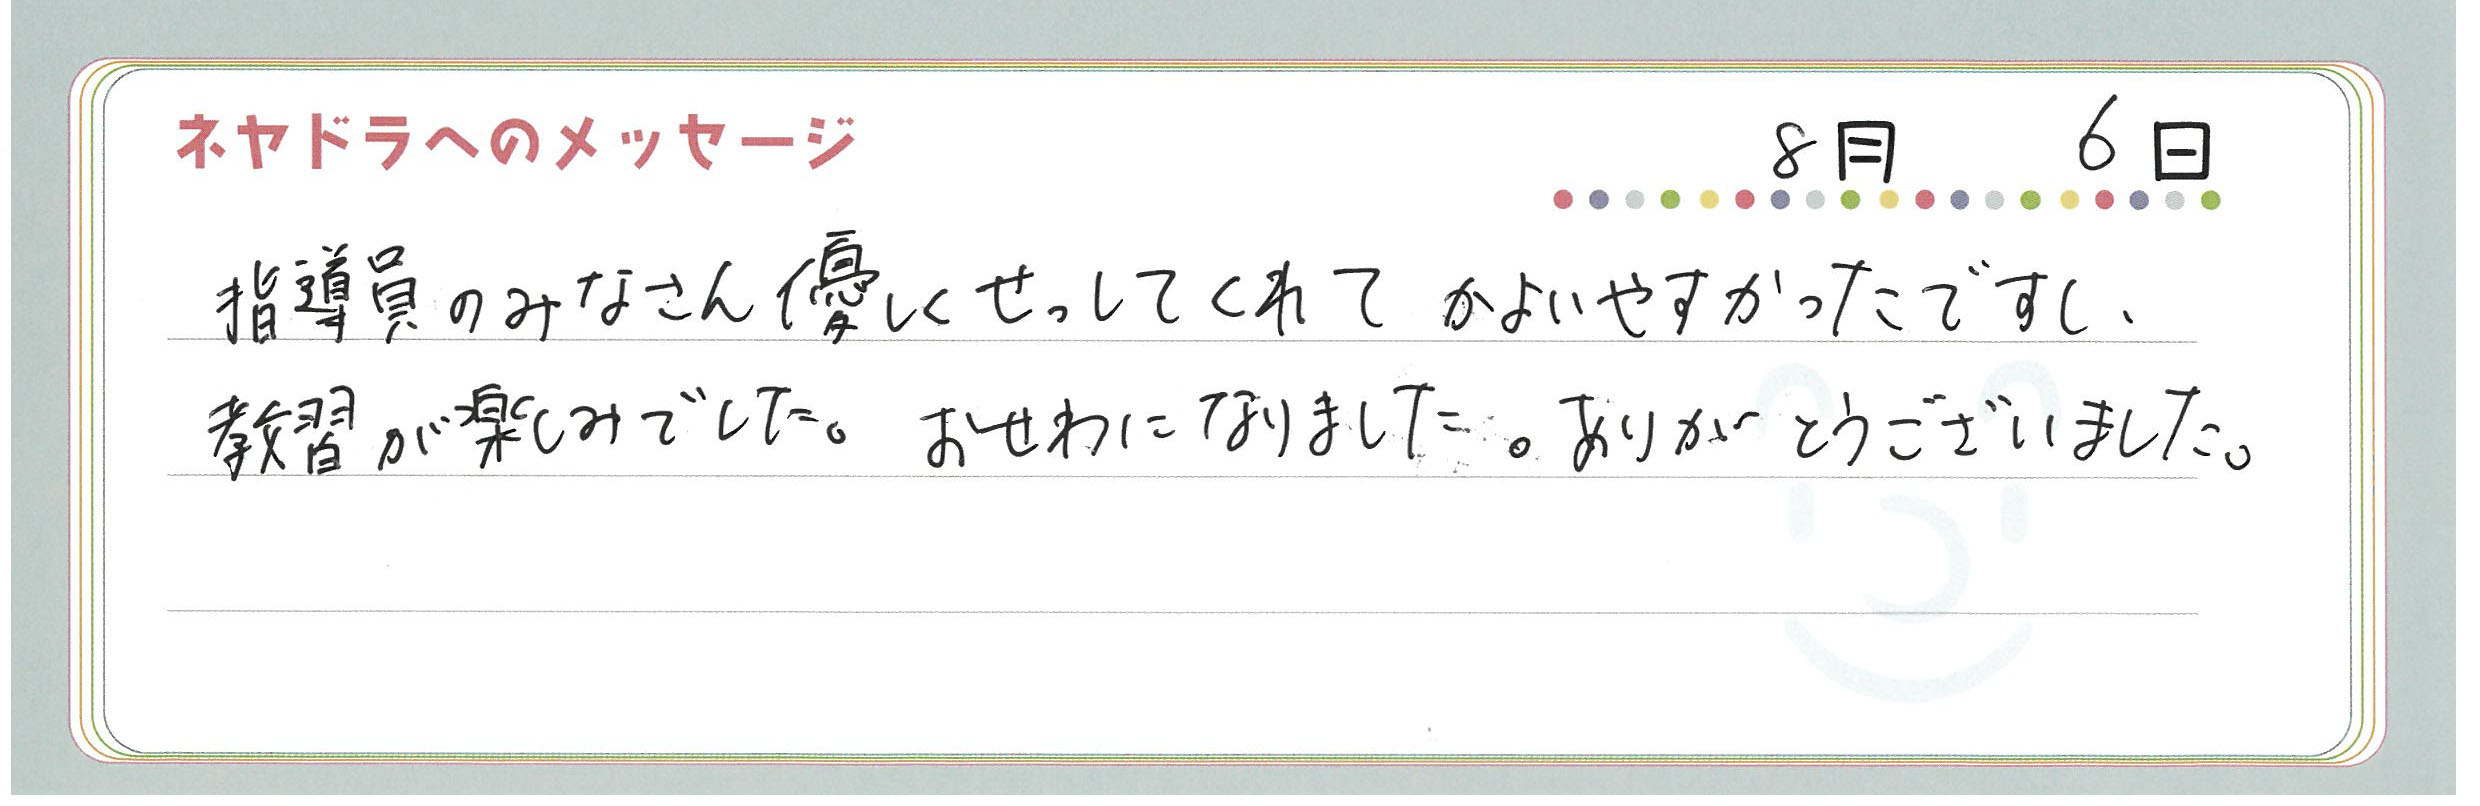 ネヤドラへのメッセージ 8月 6日
指導員のみなさん優しくせっしてくれて かよいやすかったですし、
教習が楽しみでした。 おせわになりました。ありがとうございました。